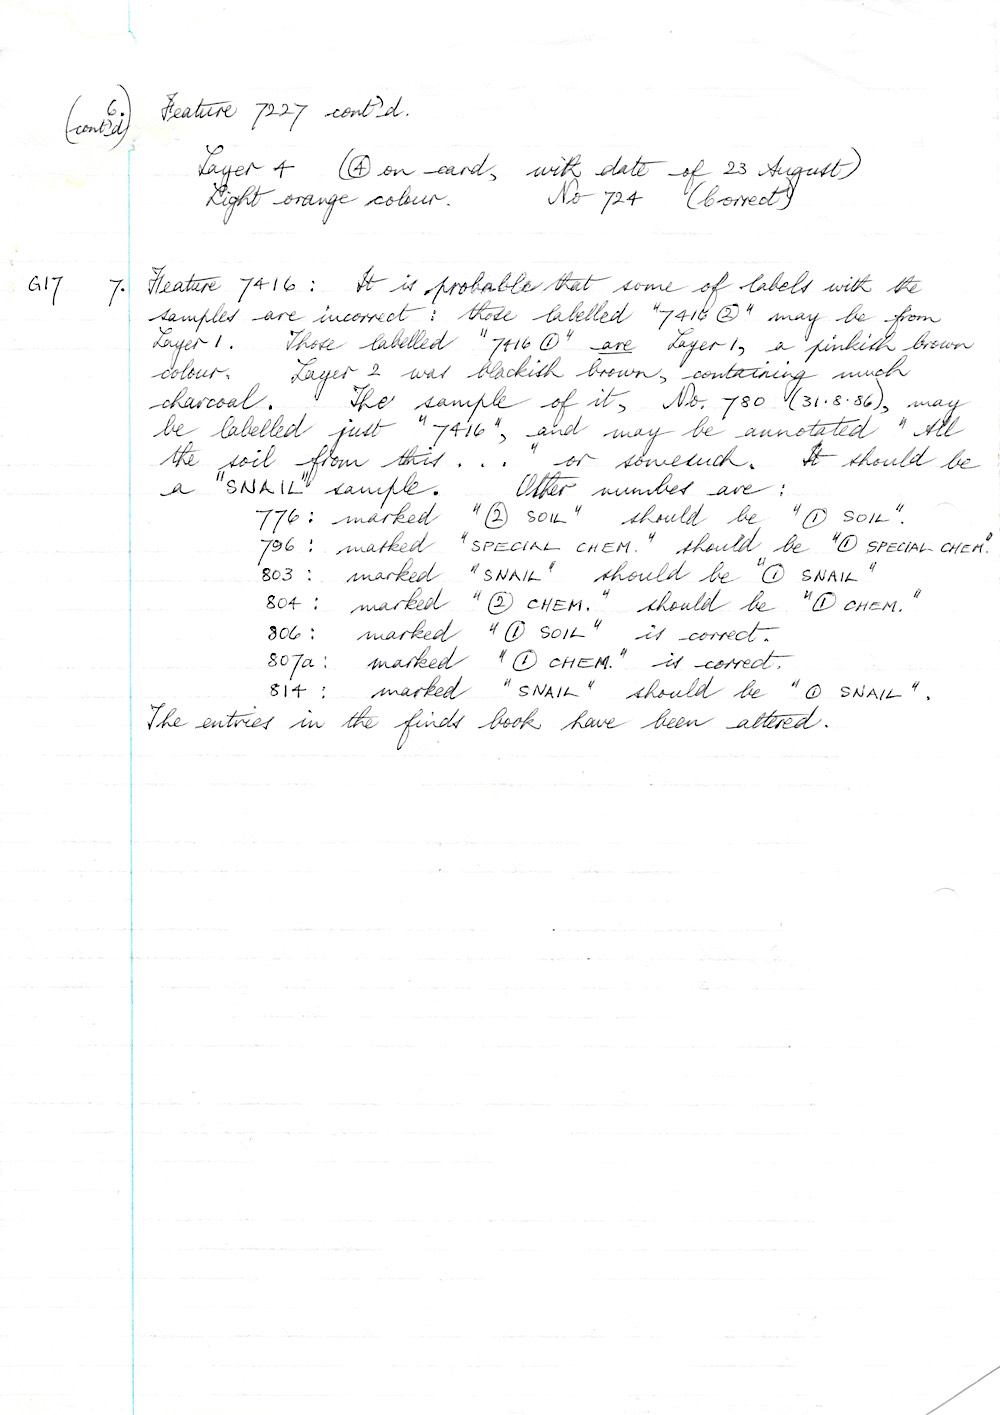 6. Feature 7227 cont'd.
(cont'd)
Layer 4 (④ on card, with date of 23 August)
Light orange colour. No 724 (Correct)
G17 7. Feature 7416: It is probable that some of labels with the
samples are incorrect: those labelled "7416 ②" may be from
Layer 1. Those labelled "7416 ①" are Layer 1, a pinkish brown
colour. Layer 2 was blackish brown, containing much
charcoal. The sample of it, No. 780 (31.8.86), may
be labelled just "7416", and may be annotated "All
the soil from this . . . " or somesuch. It should be
a "SNAIL" sample. Other numbers are:
776: marked "② SOIL" should be "① SOIL".
796: marked "SPECIAL CHEM." should be "① SPECIAL CHEM."
803: marked "SNAIL" should be "① SNAIL"
804: marked "② CHEM." should be "① CHEM."
806: marked "① SOIL" is correct.
807a: marked "① CHEM." is correct.
814: marked "SNAIL" should be "① SNAIL".
The entries in the finds book have been altered.